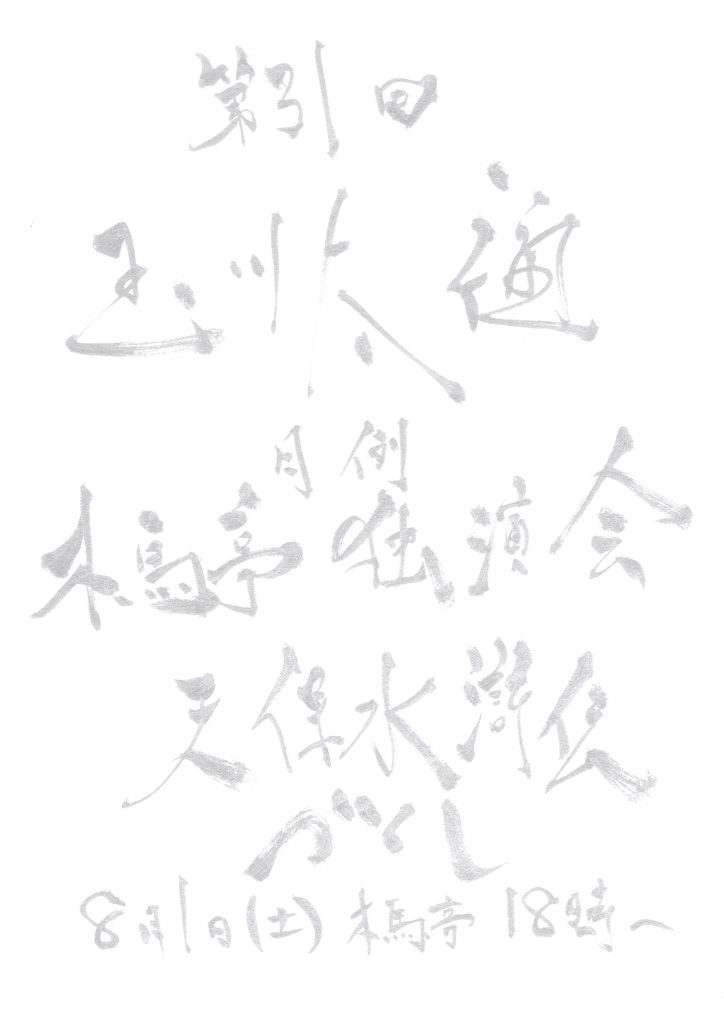 第31回
玉川太福
月例
木馬亭独演会
天保水滸伝
づくし
8月1日(土)木馬亭 18時〜